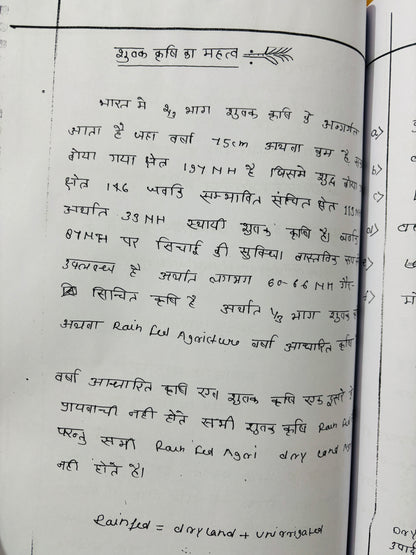 शुष्क कृषि का महत्व
भारत में 2/3 भाग शुष्क कृषि के अन्तर्गत
आता है जहां वर्षा 75cm अथवा कम है
बोया गया क्षेत्र 197 NH है जिसमे शुद्ध बोया
क्षेत्र 146 जबकि सम्भावित संचित क्षेत्र 113
अर्थात 33 NH स्थायी शुष्क कृषि है।
87 NH पर सिंचाई की सुविधा वास्तविक
उपलब्ध है अर्थात लगभग 60-66 NH गैर-
सिंचित कृषि है अर्थात 1/3 भाग शुष्क
अथवा Rain fed Agriculture वर्षा आधारित कृषि
वर्षा आधारित कृषि एवं शुष्क कृषि एक दूसरे के
प्रायवाची नही होते सभी शुष्क कृषि Rain fed
परन्तु सभी Rain fed Agri dry land
नही होते है।
Rainfed = dry land + unirrigated
a)
b)
c)
d)